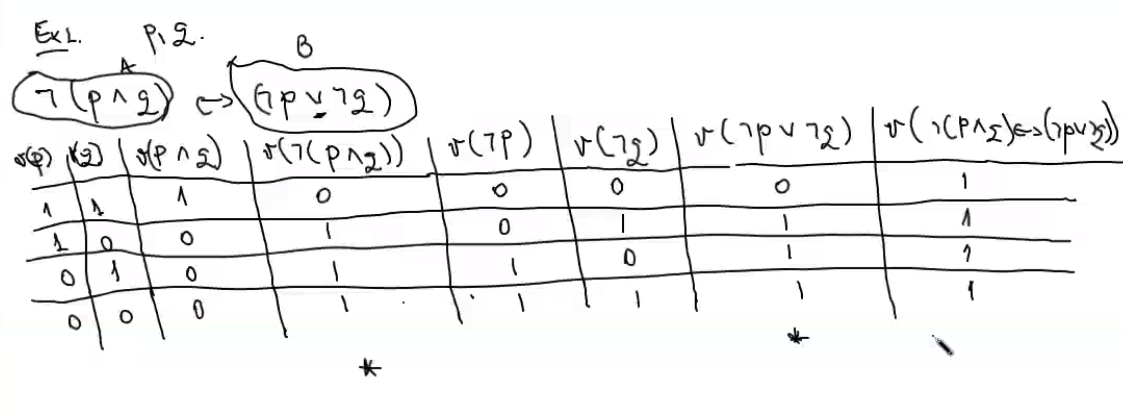 Ex1. p, q.
A B
¬(p ∧ q) ↔ (¬p ∨ ¬q)
v(p) v(q) v(p ∧ q) v(¬(p ∧ q)) v(¬p) v(¬q) v(¬p ∨ ¬q) v(¬(p ∧ q) ↔ (¬p ∨ ¬q))
1 1 1 0 0 0 0 1
1 0 0 1 0 1 1 1
0 1 0 1 1 0 1 1
0 0 0 1 1 1 1 1
* *